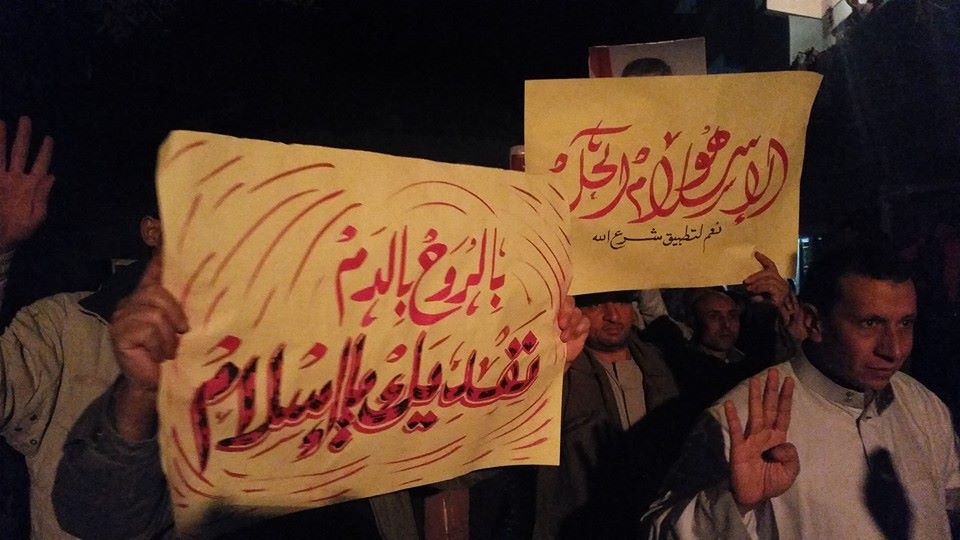 الإسلام هو الحل
نعم لتطبيق شرع الله
بالروح بالدم
نفديك يا إسلام